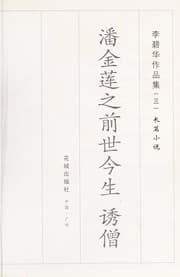 李碧华作品集(三)长篇小说
潘金莲之前世今生 诱僧
花城出版社
中国·广州